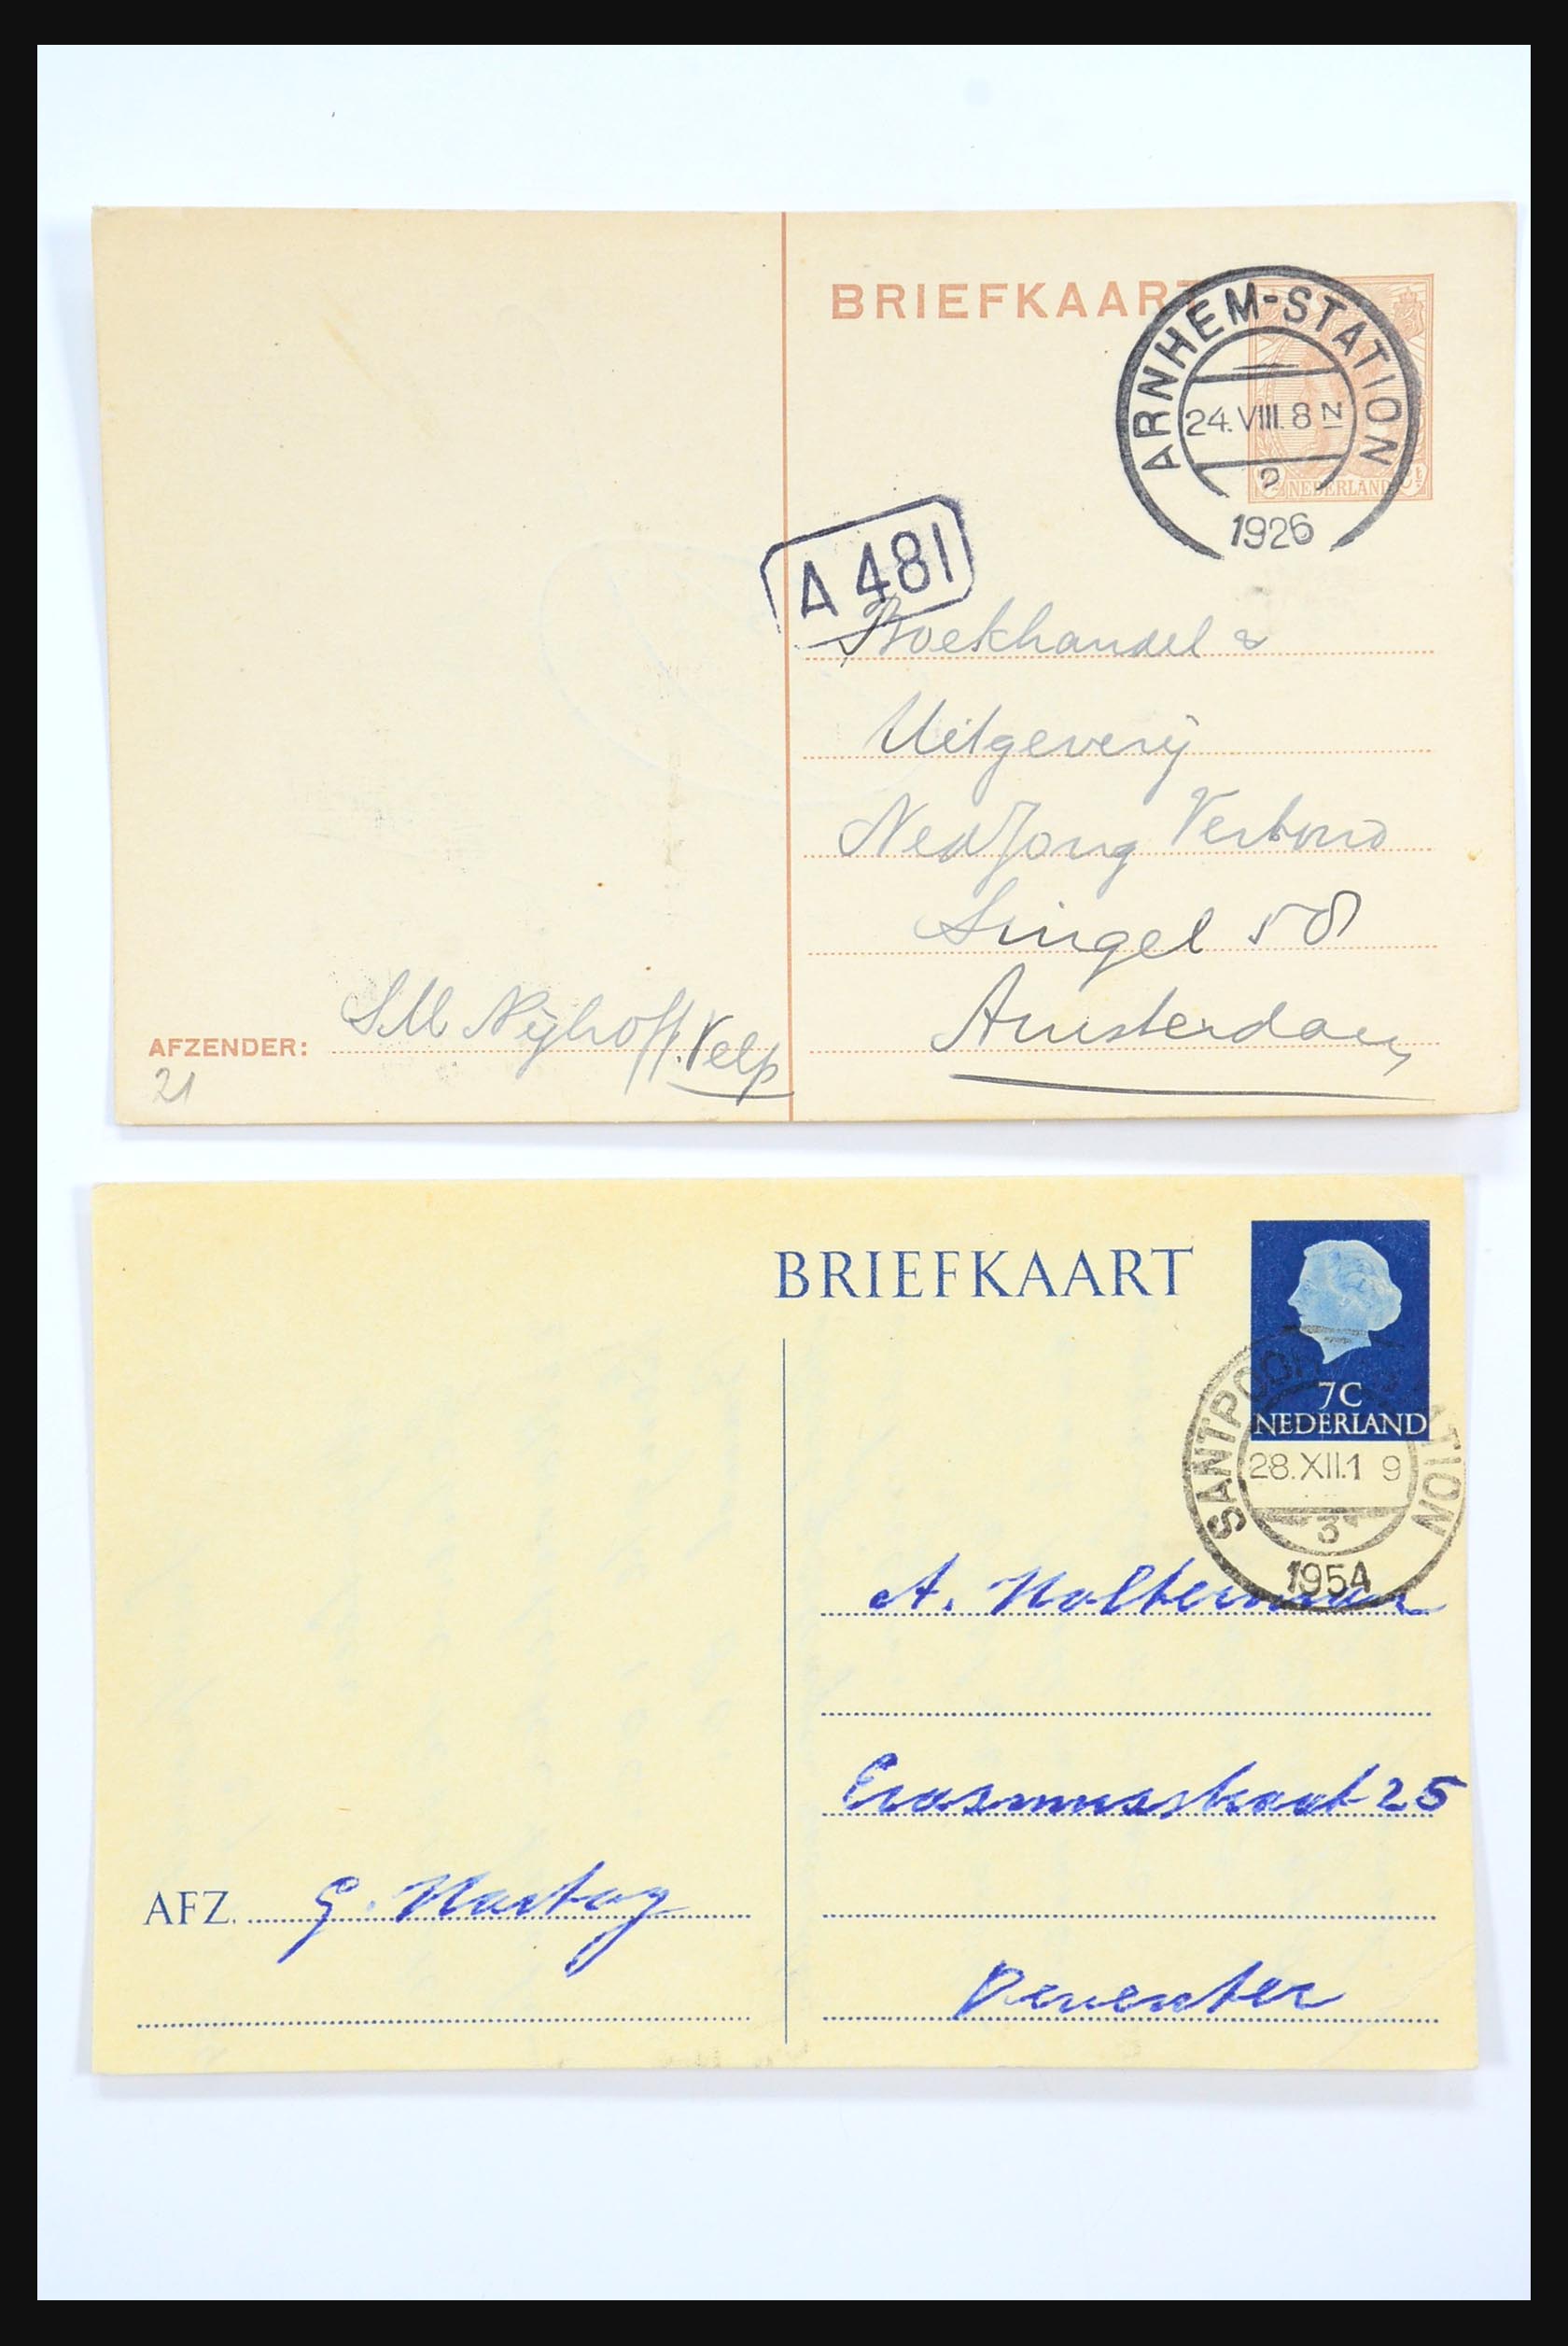 BRIEFKAART
ARNHEM-STATION
24.VIII.8 N
2
1926
NEDERLAND
A 481
Boekhandel &
Uitgeverij
Ned Jong Verbond
Singel 58
Amsterdam
AFZENDER: S.M. Nijhoff. Velp
21
BRIEFKAART
7C
NEDERLAND
28.XII.1 9
3
1954
A. Holterman
Erasmusstraat 25
AFZ. G. Hartog
Deventer